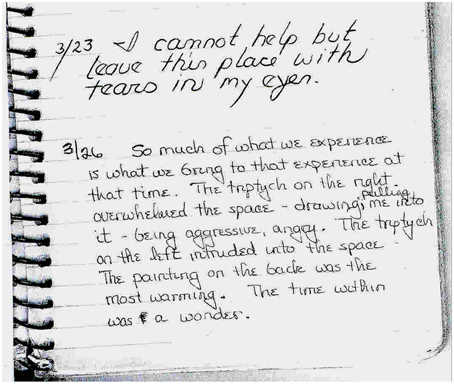 3/23 I cannot help but
leave this place with
tears in my eyes.
3/26 So much of what we experience
is what we bring to that experience at
that time. The triptych on the right
overwhelmed the space - drawing, pulling me into
it - being aggressive, angry. The triptych
on the left intruded into the space
The painting on the back was the
most warming. The time within
was a wonder.